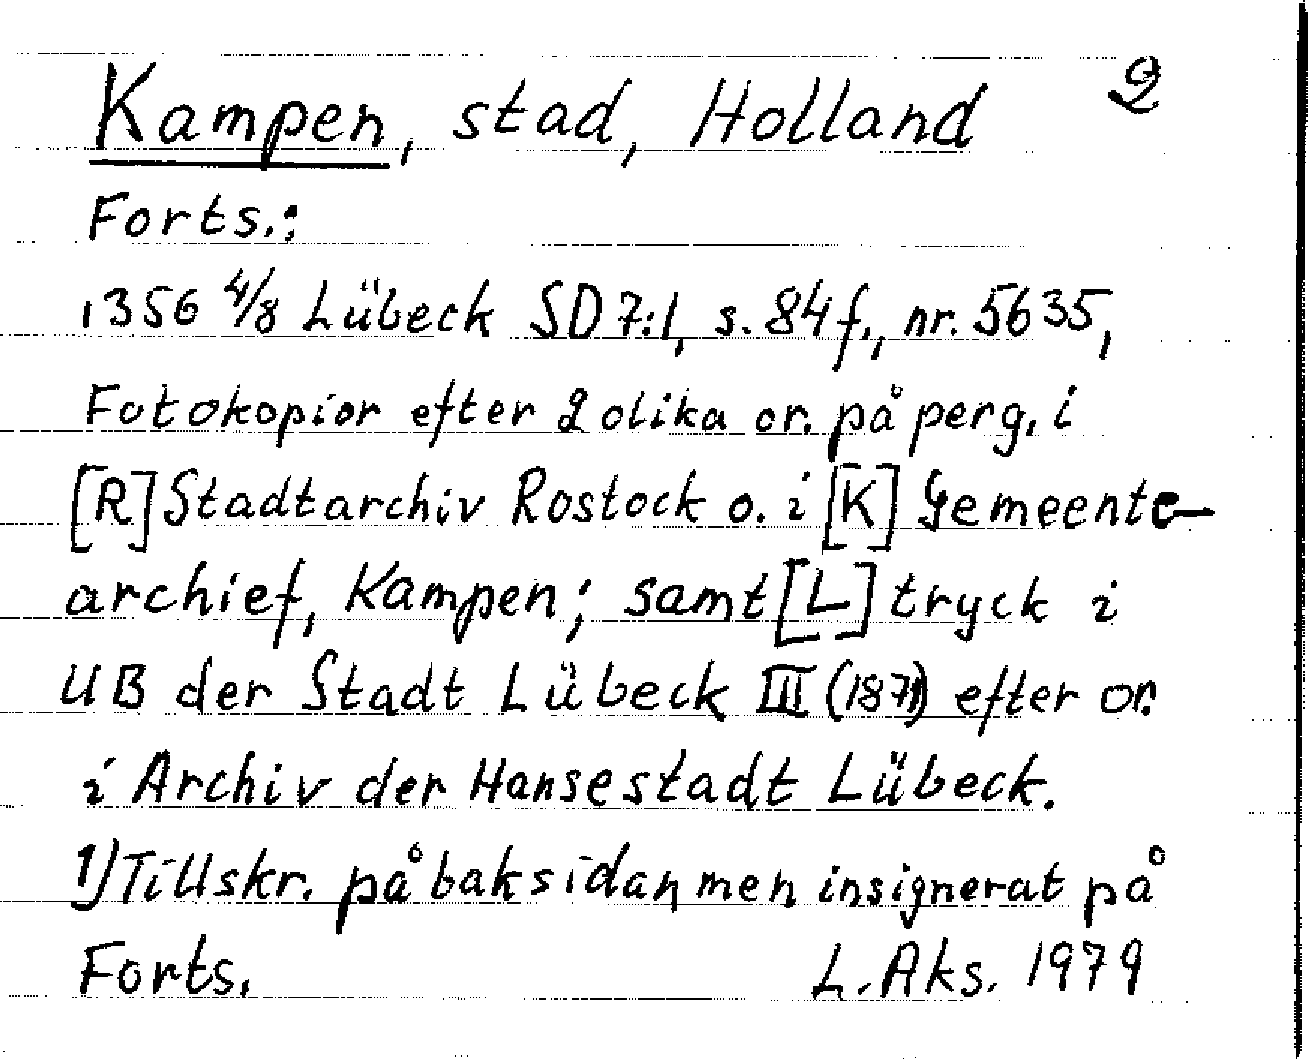 Kampen, stad, Holland 2
Forts.:
1356 4/8 Lübeck SD 7:1, s. 84 f., nr. 5635,
Fotokopior efter 2 olika or. på perg. i
[R] Stadtarchiv Rostock o. i [K] Gemeente-
archief, Kampen; samt [L] tryck i
UB der Stadt Lübeck III (1871) efter or.
i Archiv der Hansestadt Lübeck.
1) Tillskr. på baksidan men insignerat på
Forts. L. Aks. 1979